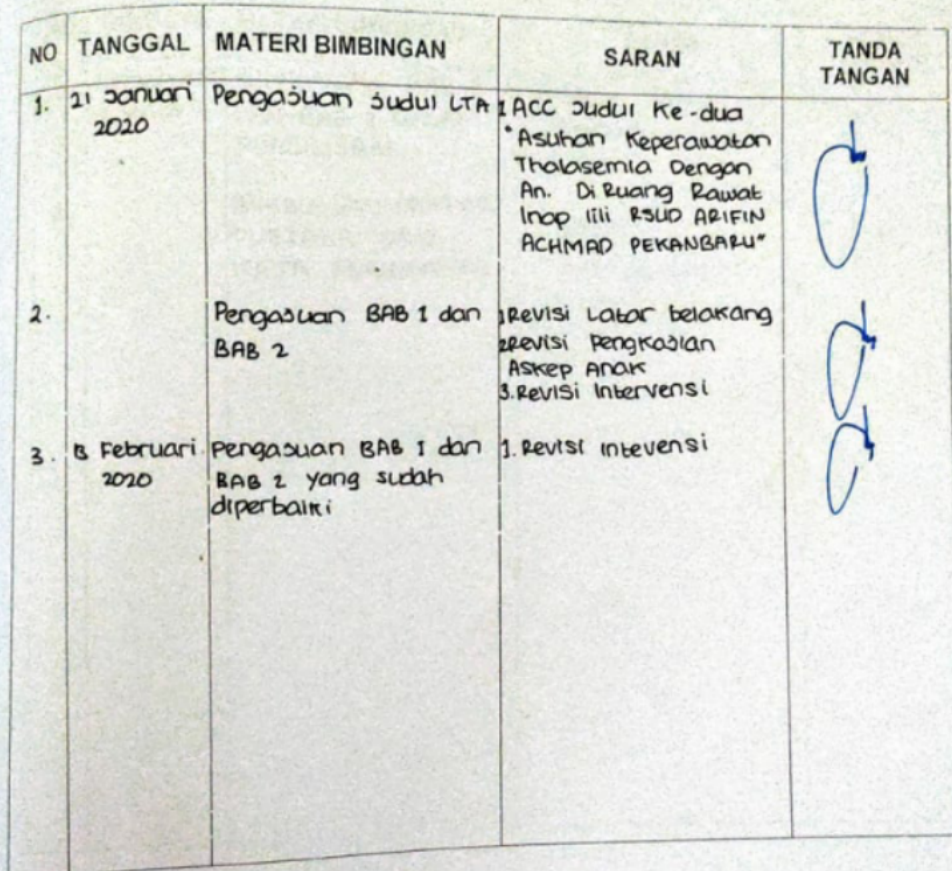 NO TANGGAL MATERI BIMBINGAN SARAN TANDA TANGAN
1. 21 Januari 2020 Pengajuan Judul LTA
1 ACC Judul Ke-dua
"Asuhan Keperawatan
Thalasemia Dengan
An. Di Ruang Rawat
Inap lili RSUD ARIFIN
ACHMAD PEKANBARU"
2. Pengajuan BAB 1 dan
BAB 2
1 Revisi Latar belakang
2 Revisi Pengkajian
Askep Anak
3. Revisi Intervensi
3. 13 Februari 2020
Pengajuan BAB 1 dan
BAB 2 yang sudah
diperbaiki
1. Revisi Intevensi